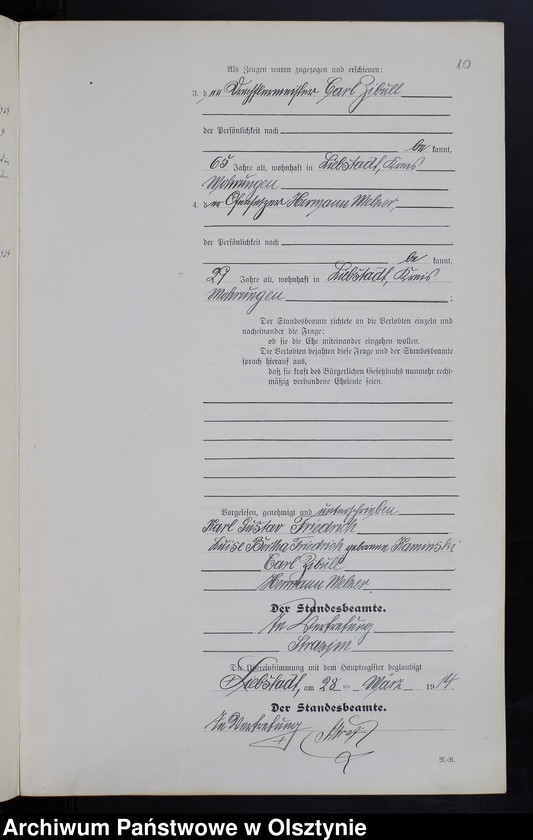 10
Als Zeugen waren zugezogen und erschienen:
3. der Drechslermeister Carl Zibull
der Persönlichkeit nach
be kannt,
65 Jahre alt, wohnhaft in Liebstadt, Kreis
Mohrungen
4. der Ofensetzer Hermann Melzer,
der Persönlichkeit nach
be kannt,
29 Jahre alt, wohnhaft in Liebstadt, Kreis
Mohrungen ;
Der Standesbeamte richtete an die Verlobten einzeln und
nacheinander die Frage:
ob sie die Ehe miteinander eingehen wollen.
Die Verlobten bejahten diese Frage und der Standesbeamte
sprach hierauf aus,
daß sie kraft des Bürgerlichen Gesetzbuchs nunmehr recht-
mäßig verbundene Eheleute seien.
Vorgelesen, genehmigt und unterschrieben
Karl Gustav Friedrich
Luise Bertha Friedrich geborene Kaminski
Carl Zibull
Hermann Melzer
Der Standesbeamte.
In Vertretung
Die Übereinstimmung mit dem Hauptregister beglaubigt
Liebstadt, am 28 ten März 1914.
Der Standesbeamte.
In Vertretung
N.-R.
Archiwum Państwowe w Olsztynie